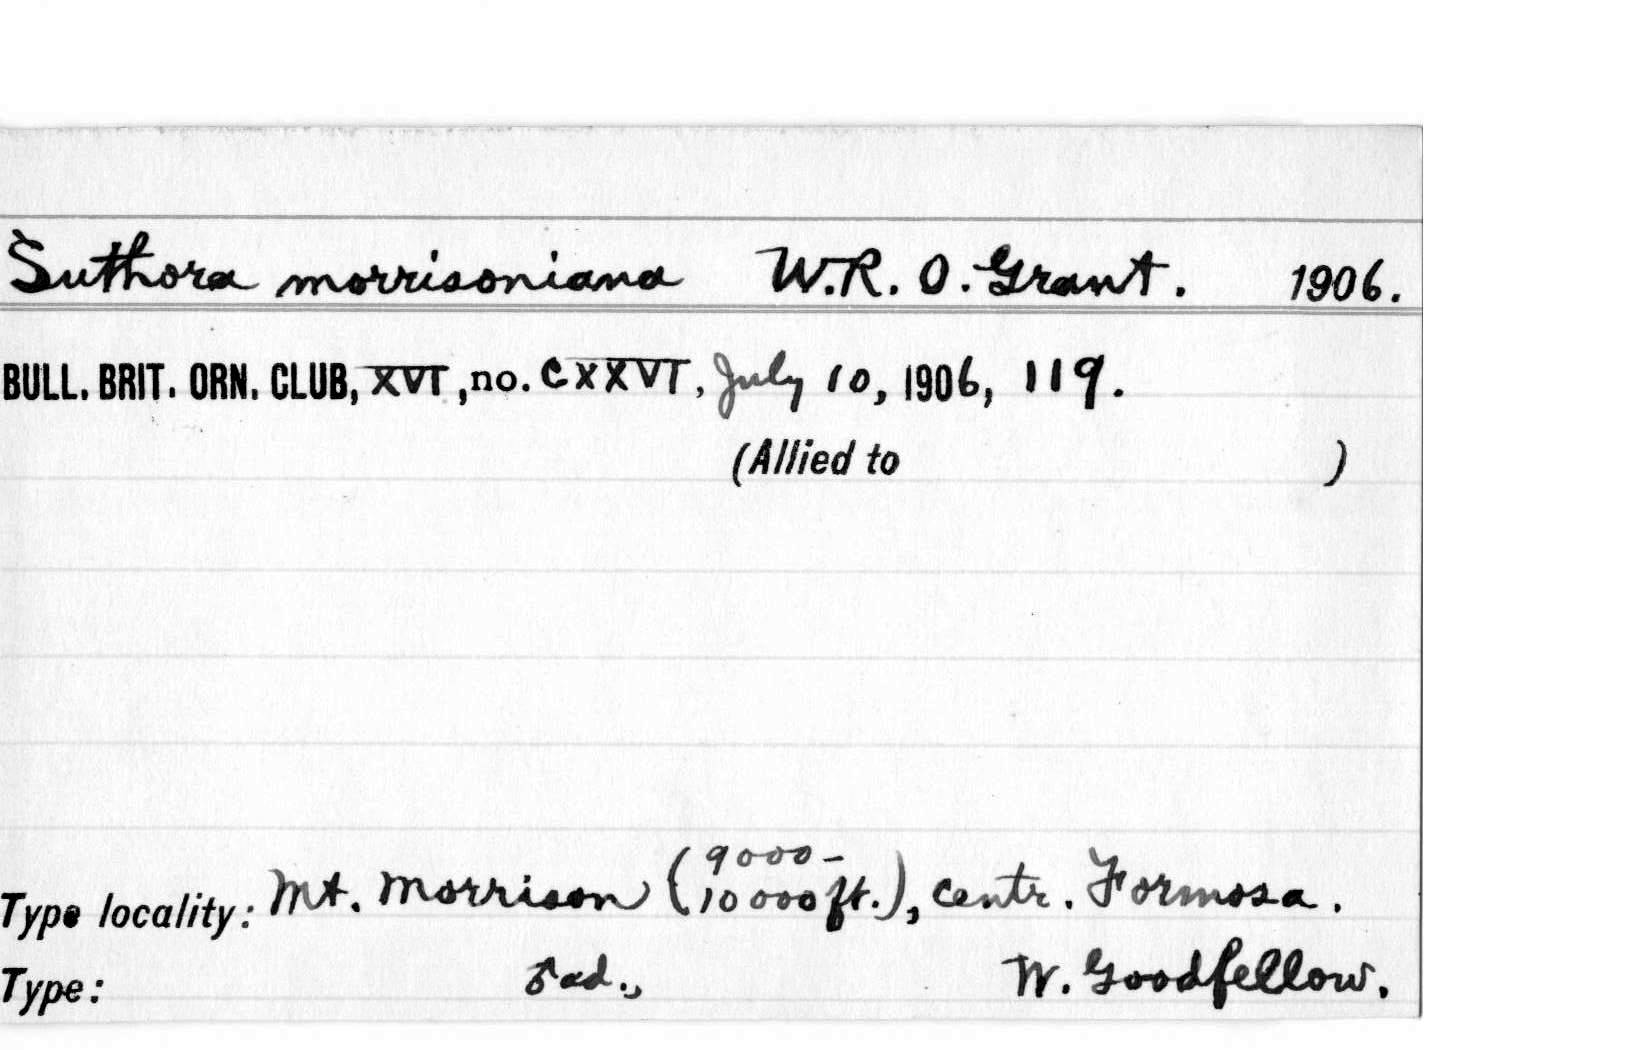 Suthora morrisoniana W.R. O. Grant. 1906.
BULL. BRIT. ORN. CLUB, XVI, no. CXXVI, July 10, 1906, 119.
(Allied to )
Type locality: Mt. Morrison (9000-10000ft.), centr. Formosa.
Type: ♂ ad., W. Goodfellow.